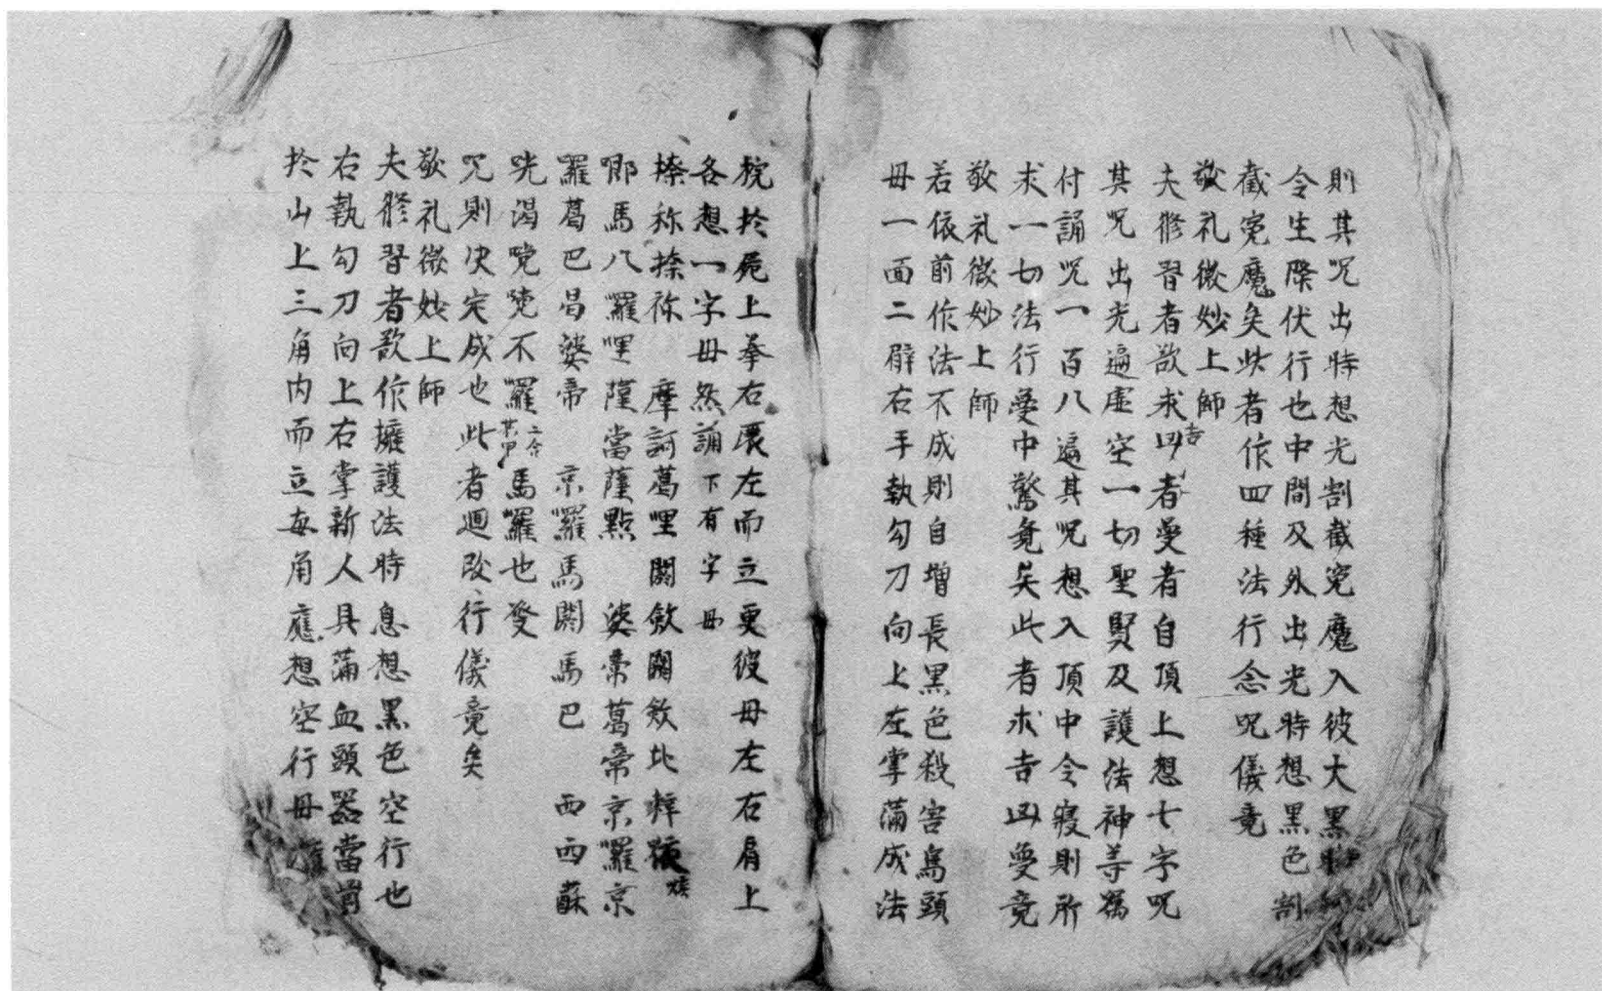 則其呪出時想光割截冤魔入彼大黑
令生降伏行也中間及外出光時想黑色割
截冤魔矣此者作四種法行念呪儀竟
敬礼微妙上師
夫修習者欲求吉凶者夢者自頂上想七字呪
其呪出光遍虛空一切聖賢及護法神等爲
付誦呪一百八遍其呪想入頂中令寢則所
求一切法行夢中驚竟矣此者求吉凶夢竟
敬礼微妙上師
若依前作法不成則自增長黑色殺害烏頭
母一面二臂右手執勾刀向上左掌滿成法
椀扵屍上拳右展左而立更彼母左右肩上
各想一字母然誦下有字母
捺祢捺祢 摩訶葛哩 閼㰸閼㰸比
唧馬八囉哩薩當薩點 婆帝葛帝京囉京
囉葛巴曷婆帝 京囉馬閼馬巴 西西蘇
吽渴 不囉二合馬囉也發
咒則决定成也此者廻改行儀竟矣
敬礼微妙上師
夫修習者欲作擁護法時息想黑色空行也
右執勾刀向上右掌新人具滿血頭器當胷
扵山上三角内而立每角應想空行母